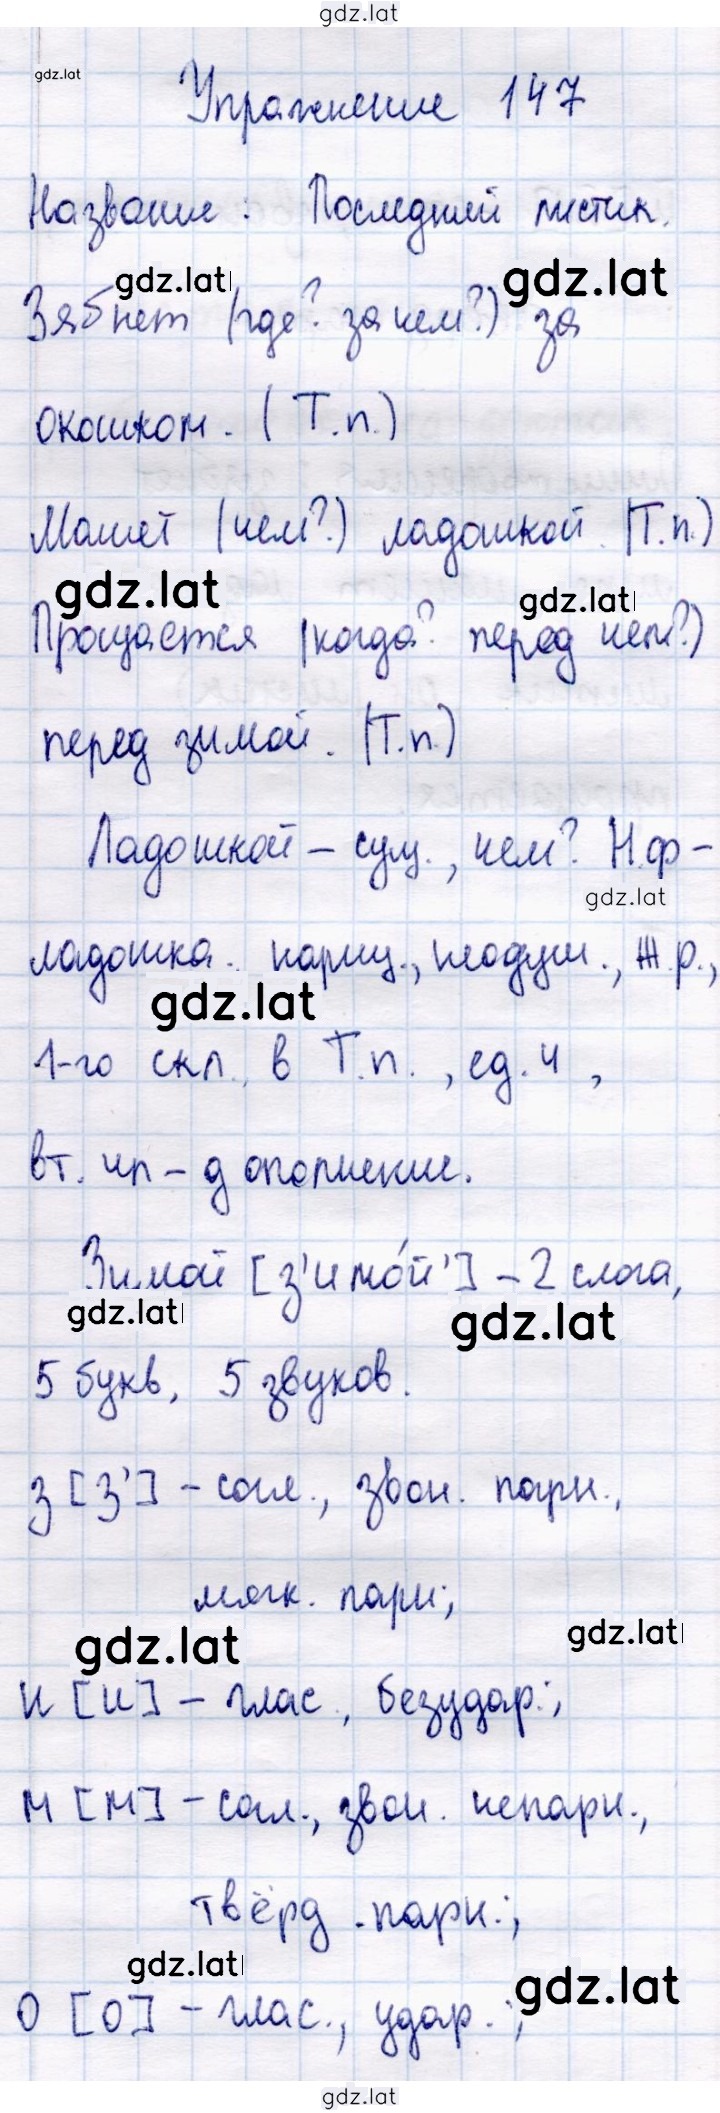 gdz.lat
gdz.lat
Упражнение 147
Название: Последний листик.
gdz.lat gdz.lat
Зябнет (где? за чем?) за
окошком. (Т.п.)
Машет (чем?) ладошкой. (Т.п.)
gdz.lat gdz.lat
Прощается (когда? перед чем?)
перед зимой. (Т.п.)
Ладошкой – сущ., чем? Н.ф –
gdz.lat
ладошка. нариц., неодуш., ж.р.,
gdz.lat
1-го скл., в Т.п., ед. ч,
вт. чл – дополнение.
Зимой [з'имо́й'] – 2 слога,
gdz.lat gdz.lat
5 букв, 5 звуков.
з [з'] – согл., звон. парн.,
мягк. парн;
gdz.lat gdz.lat
и [и] – глас., безудар.;
м [м] – согл., звон. непарн.,
твёрд. парн.;
gdz.lat gdz.lat
о [о] – глас., удар.;
gdz.lat